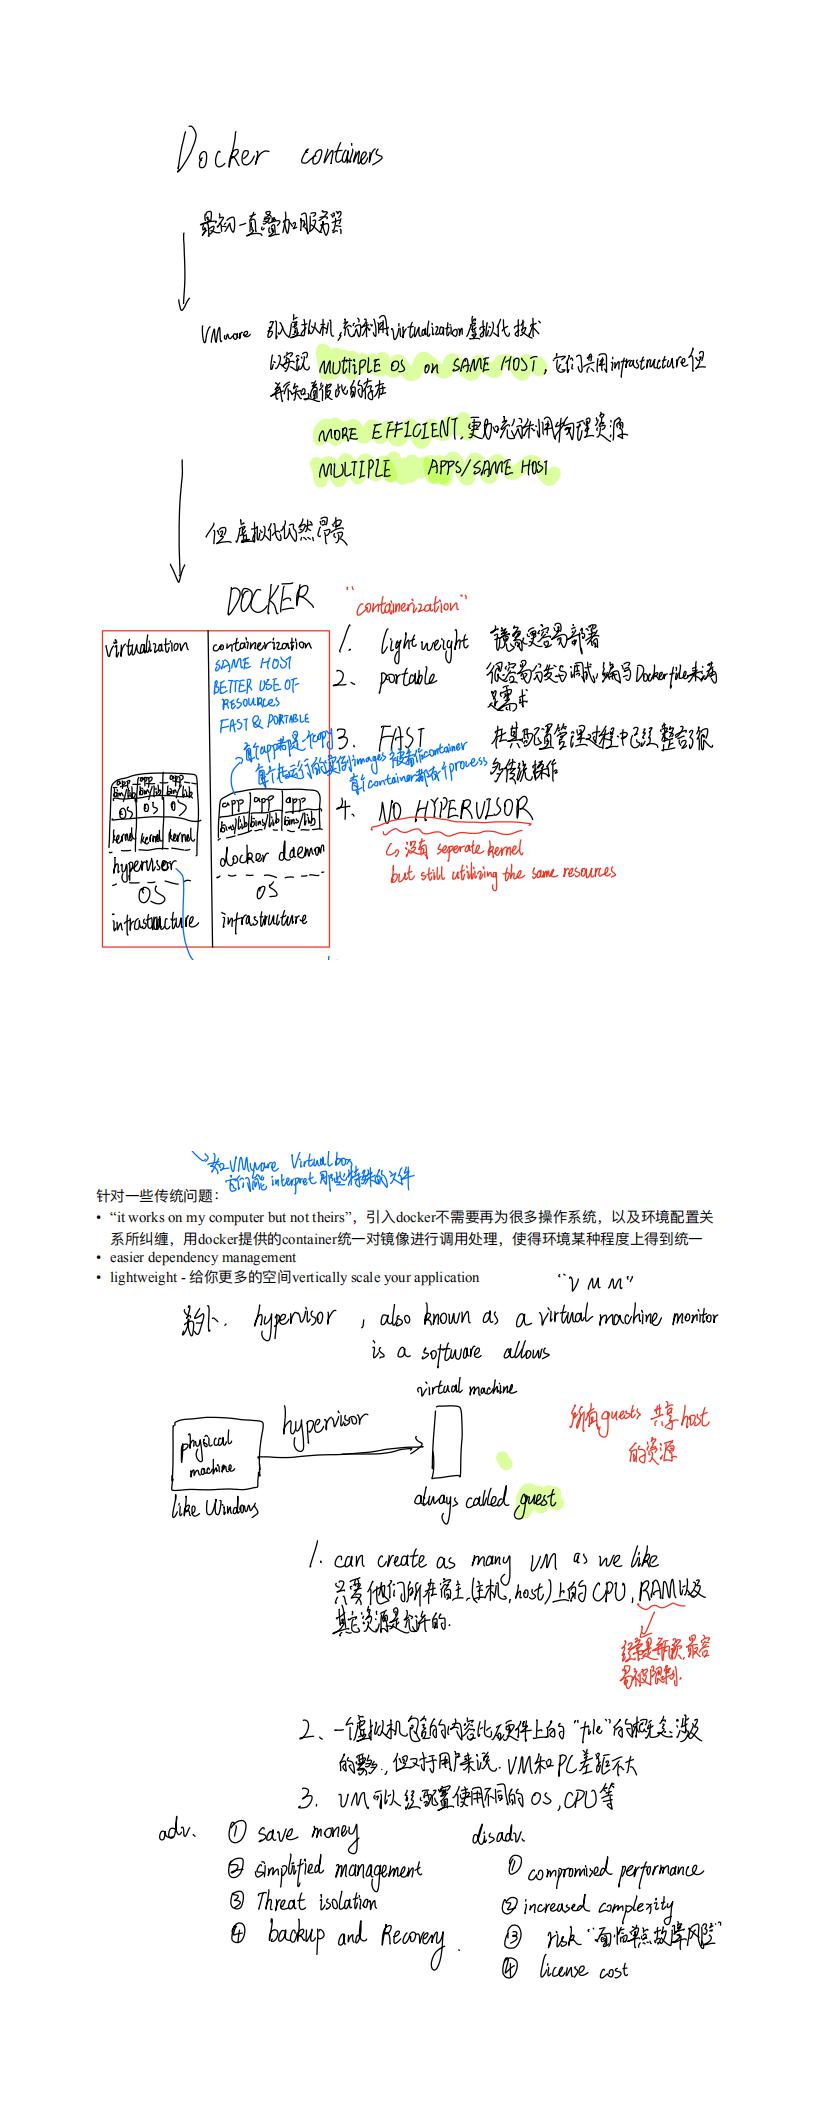 Docker containers
最初一直叠加服务器
VMware 引入虚拟机,充分利用virtualization虚拟化技术
以实现 MULTIPLE OS on SAME HOST, 它们共用infrastructure但
并不知道彼此的存在
MORE EFFICIENT, 更加充分利用物理资源
MULTIPLE APPS/SAME HOST
但虚拟化仍然昂贵
DOCKER "containerization"
virtualization
app app app
bin/lib bin/lib bin/lib
OS OS OS
kernel kernel kernel
hypervisor
OS
infrastructure
containerization
SAME HOST
BETTER USE OF
RESOURCES
FAST & PORTABLE
每个app都是一个copy
每个在运行的实例images 被看作container
每个container都有个process
app app app
bins/lib bins/lib bins/lib
docker daemon
OS
infrastructure
1. light weight 镜象更容易部署
2、 portable 很容易分发与调试, 编写Dockerfile来满
足需求
3. FAST 在其配置管理过程中已经整合了很
多传统操作
4. NO HYPERVISOR
↳ 没有 seperate kernel
but still utilizing the same resources
如VMware Virtualbox
它们能interpret那些特殊的文件
针对一些传统问题：
• “it works on my computer but not theirs”，引入docker不需要再为很多操作系统，以及环境配置关
系所纠缠，用docker提供的container统一对镜像进行调用处理，使得环境某种程度上得到统一
• easier dependency management
• lightweight - 给你更多的空间vertically scale your application
"V M M"
另外. hypervisor , also known as a virtual machine monitor
is a software allows
physical
machine
like Windows
hypervisor
virtual machine
always called guest
所有guests 共享host
的资源
1. can create as many VM as we like
只要他们所在宿主(主机, host)上的CPU, RAM以及
其它资源是允许的.
经常是瓶颈,最容
易被限制.
2、一个虚拟机包含的内容比硬件上的"file"的概念涉及
的要多, 但对于用户来说. VM和PC差距不大
3. VM可以经配置使用不同的OS, CPU等
adv.
① save money
② simplified management
③ Threat isolation
④ backup and Recovery.
disadv.
① compromised performance
② increased complexity
③ risk "面临单点故障风险"
④ license cost